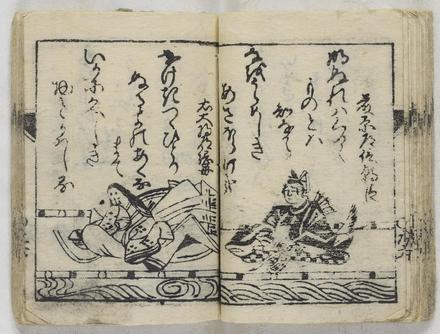 藤原道信朝臣
明ぬれはくるゝ
ものとは
知なから
なをうらめしき
あさほらけ哉
右大将道綱母
なけきつゝひとり
ぬるよのあくる
まは
いかにひさしき
物とかはしる